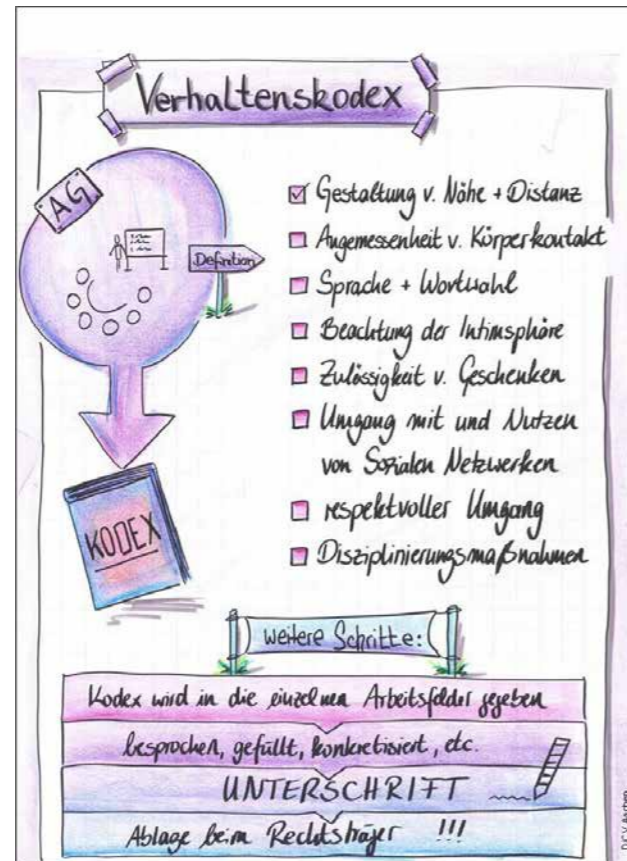 Verhaltenskodex
AG
Definition
Gestaltung v. Nähe + Distanz
Angemessenheit v. Körperkontakt
Sprache + Wortwahl
Beachtung der Intimsphäre
Zulässigkeit v. Geschenken
Umgang mit und Nutzen
von Sozialen Netzwerken
respektvoller Umgang
Disziplinierungsmaßnahmen
KODEX
weitere Schritte:
Kodex wird in die einzelnen Arbeitsfelder gegeben
besprochen, gefüllt, konkretisiert, etc.
UNTERSCHRIFT
Ablage beim Rechtsträger !!!
DiCV Aachen